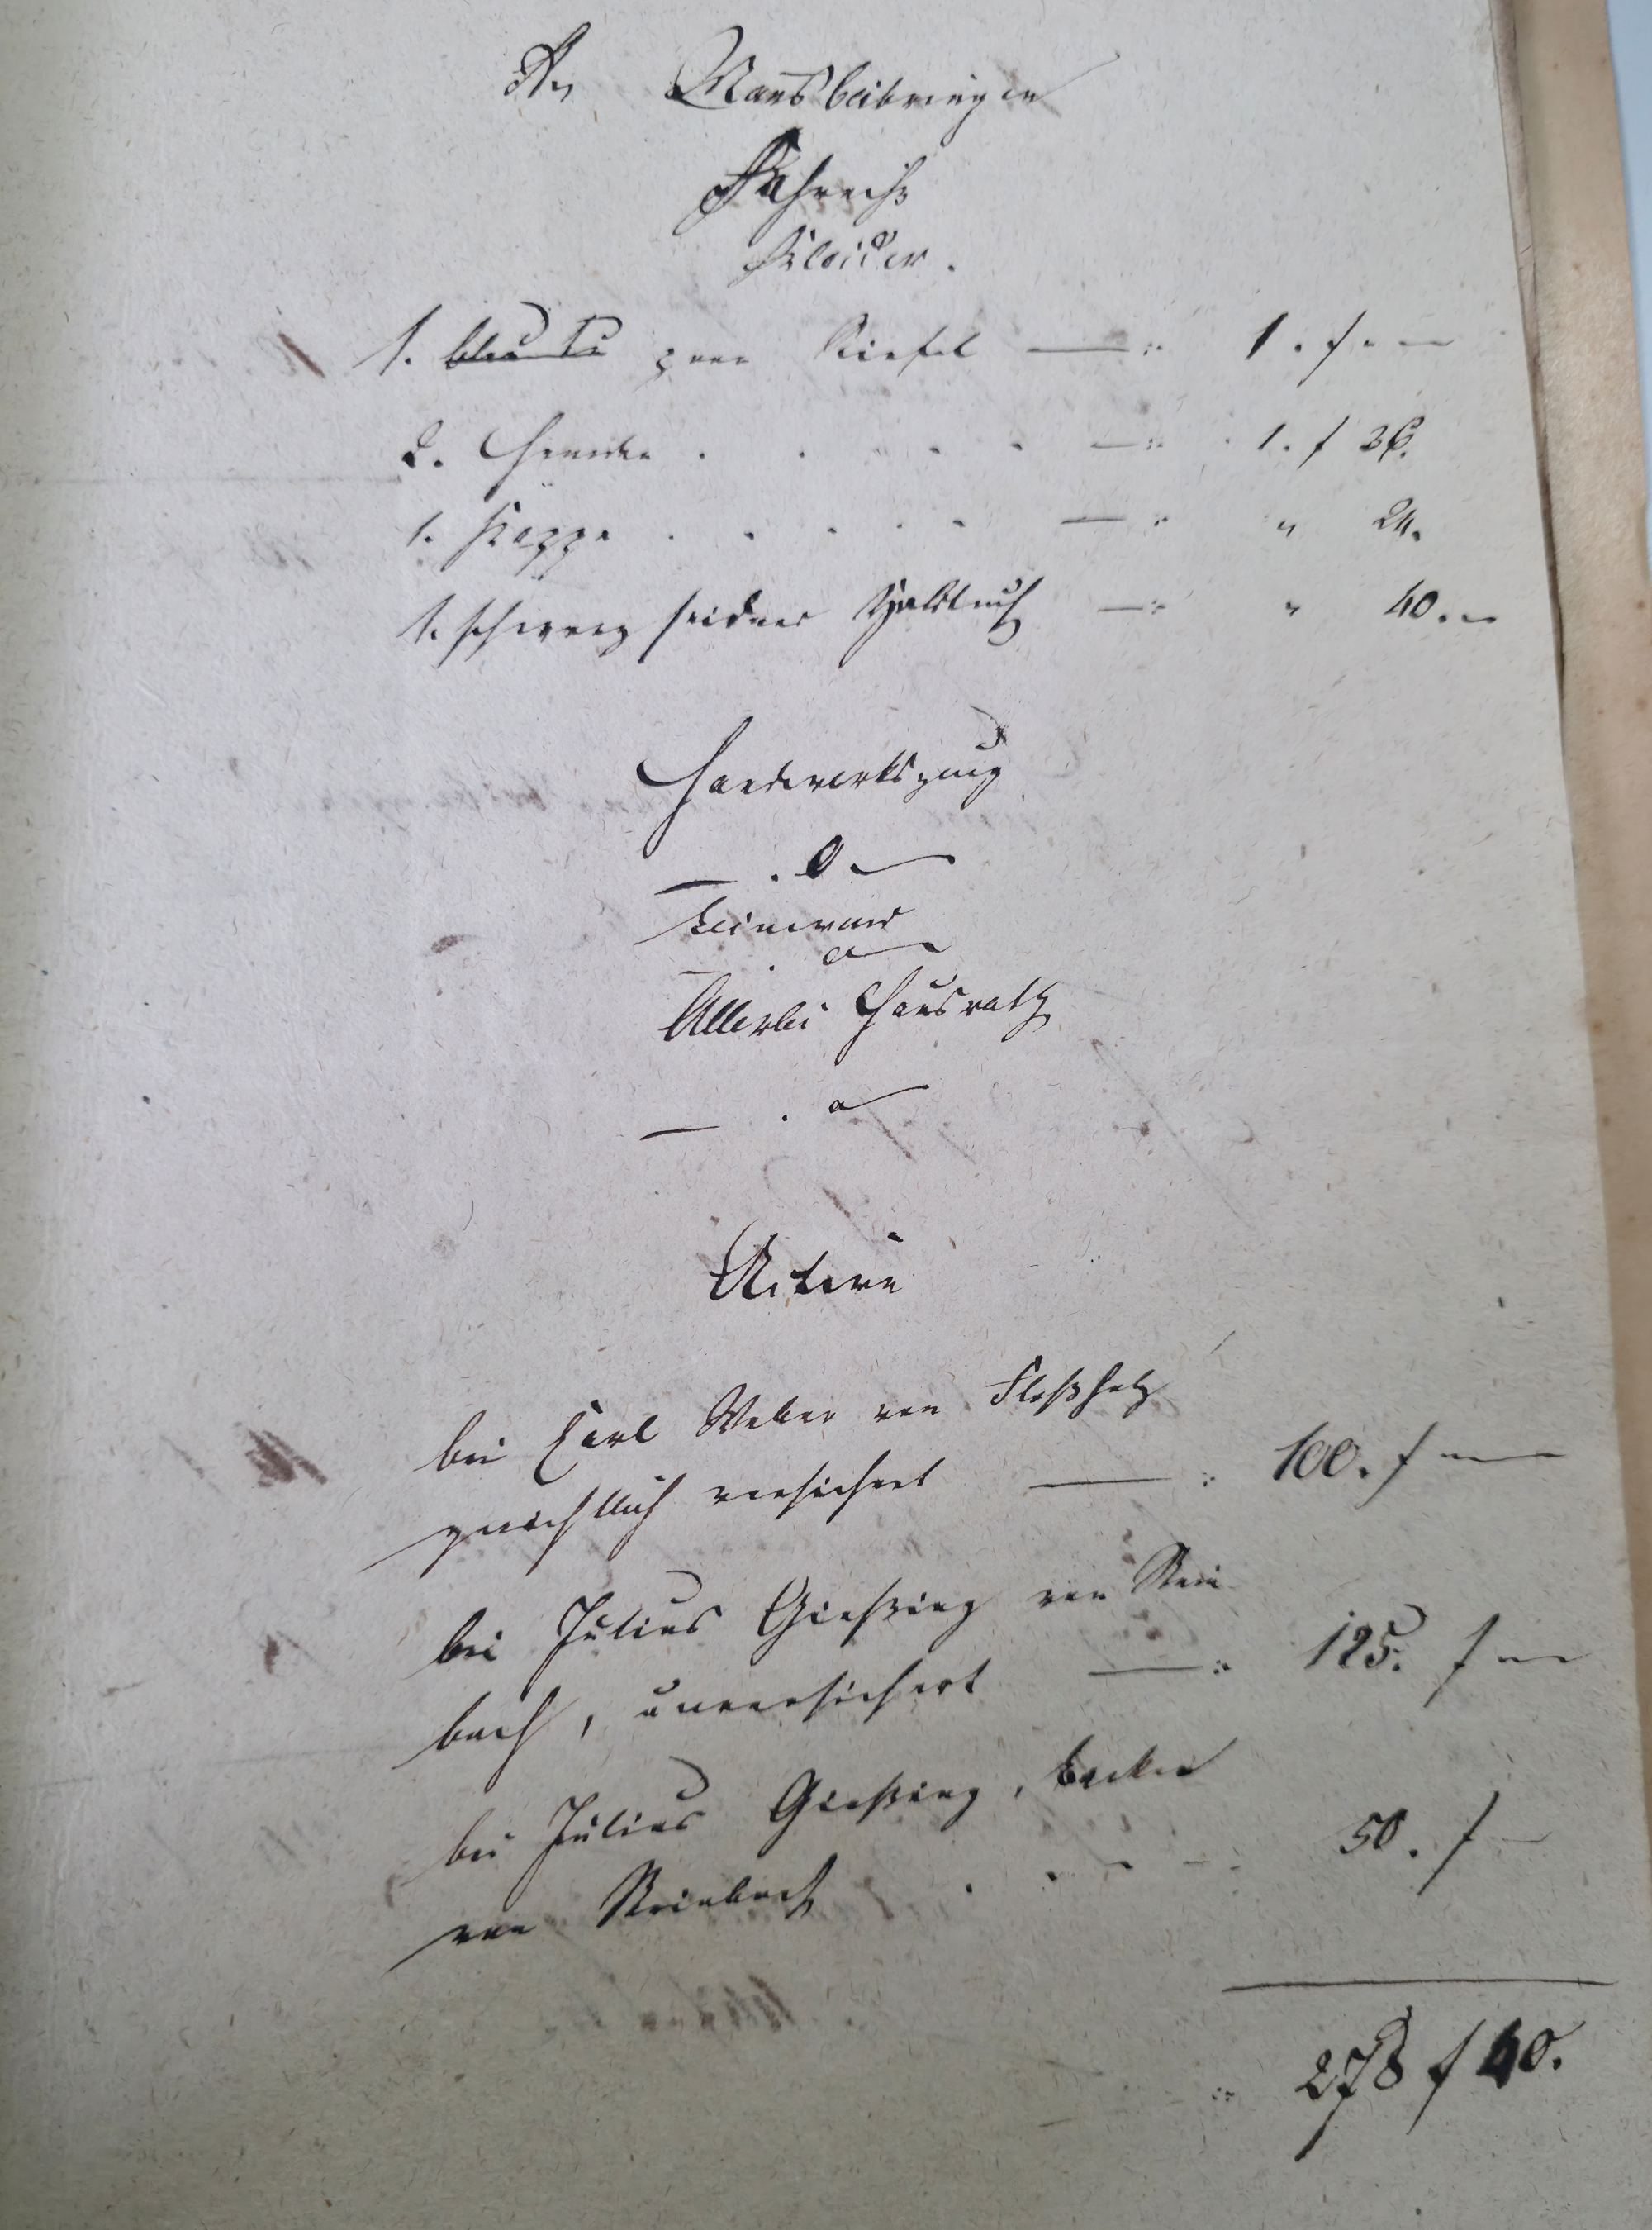 An Mansbeibringen
Fahrniß
Kleider.
1. paar Stiefel —:: 1. f. —
2. Hemder . . . . —:: 1. f 36.
1. Kappe . . . . . —:: " 24.
1. schwarz seidnes Halstuch —:: " 40. —
Handwerkszeug
— . 0 —
Leinwand
— . 0 —
Allerlei Hausrath
— . 0 —
Activa
bei Carl Weber von
gerichtlich versichert —:: 100. f —
bei Julius Gießing von Stein-
bach, unversichert —:: 125. f —
bei Julius Gießing,
von Steinbach . . . — 50. f —
:: 278 f 40.